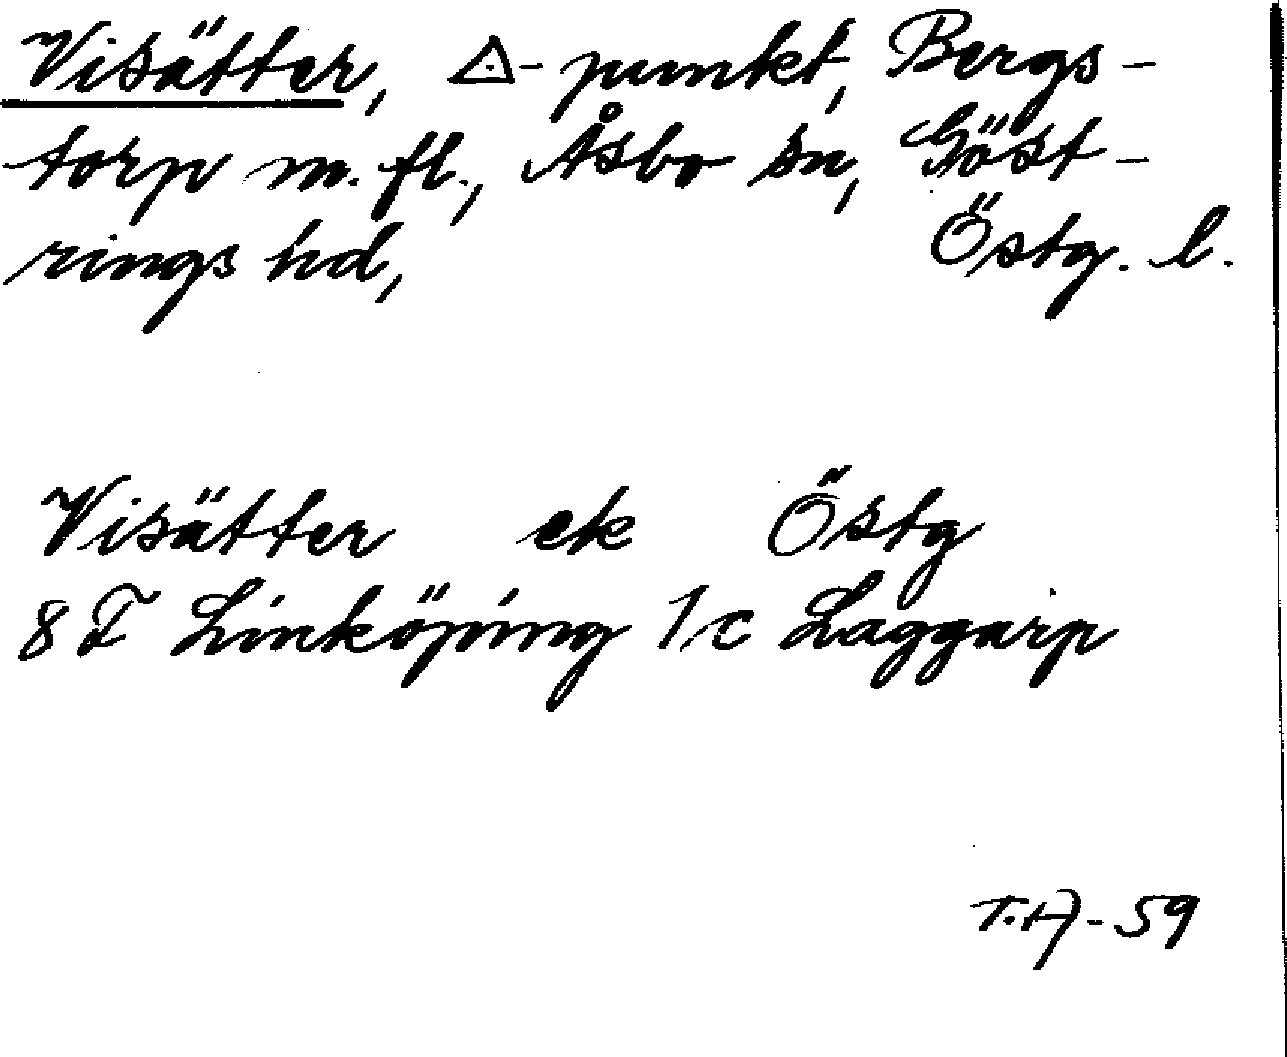 Visätter, △-punkt, Bergs-
torp m. fl., Åsbo sn, Göst-
rings hd, Östg. l.
Visätter ek Östg
8 F Linköping 1c Laggarp
T.A-59